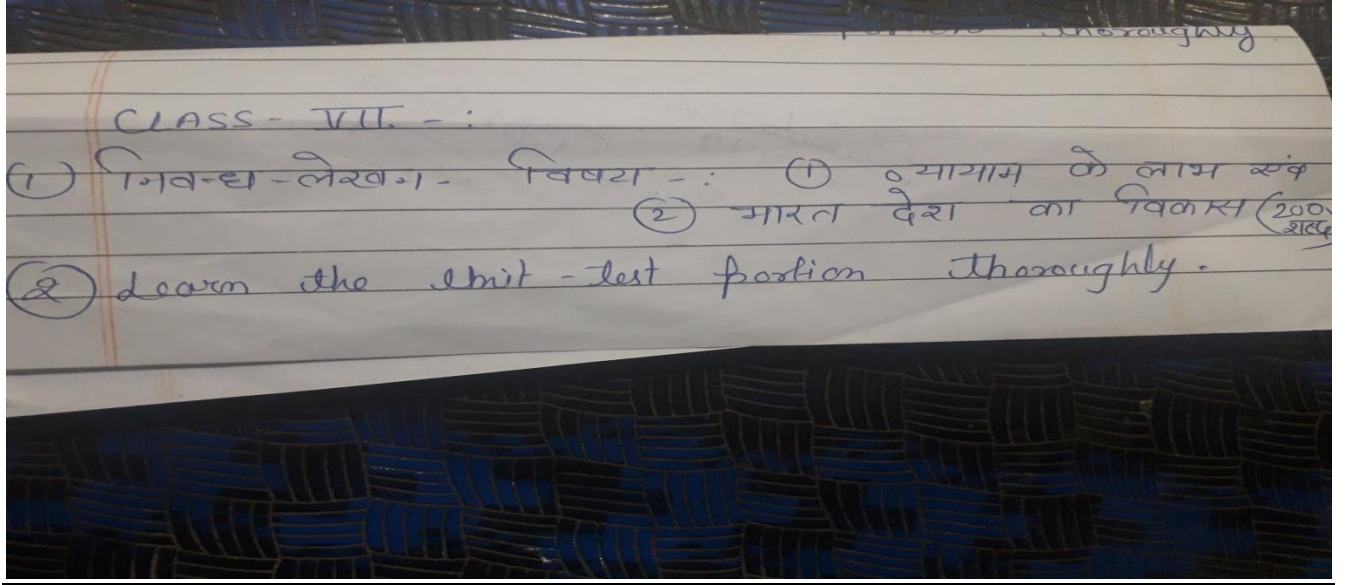 thoroughly
CLASS - VII. - :
① निबन्ध - लेखन - विषय - : ① व्यायाम के लाभ एवं
② भारत देश का विकास (200 शब्द)
② Learn the Unit - test portion thoroughly.